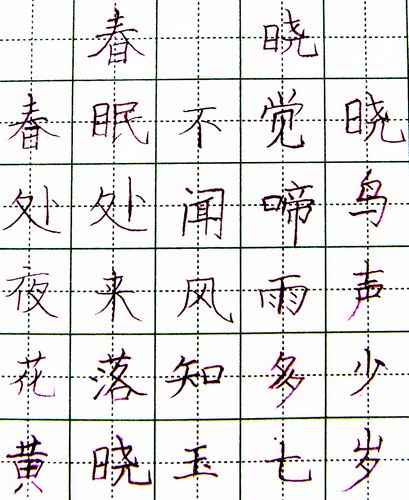 春晓
春眠不觉晓
处处闻啼鸟
夜来风雨声
花落知多少
黄晓玉七岁